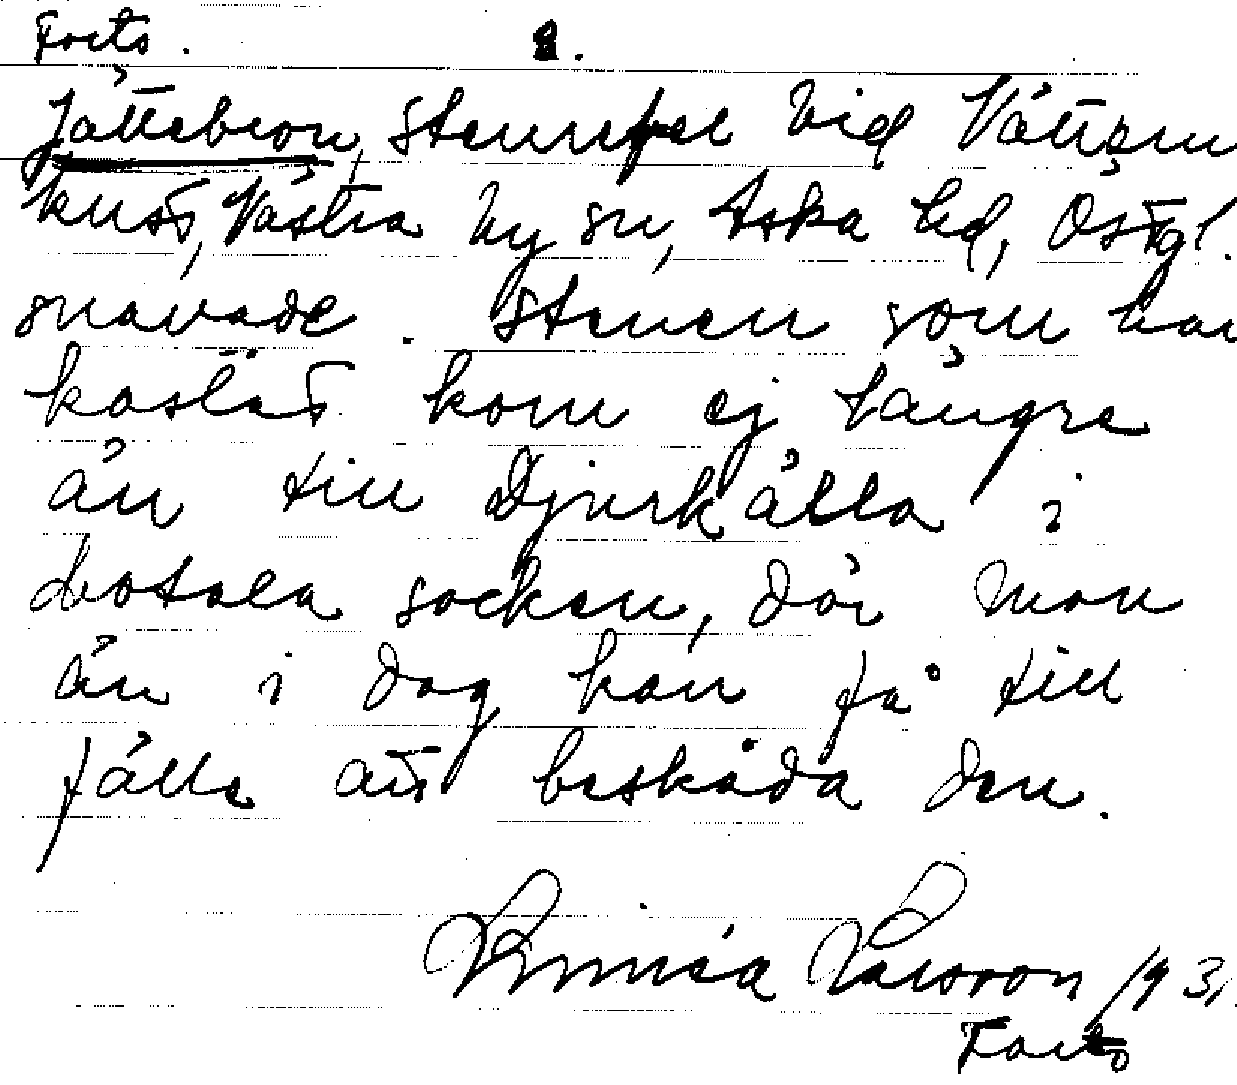 Forts. 2.
Jättebron, stenrör vid Vättern
kust, Västra Ny sn, Aska hd, Östgl.
snavade. Stenen som var
kastat kom ej längre
än till Djurkälla i
Motala socken, där man
än i dag kan få till
fälle att beskåda den.
Linnéa Larsson 1931.
Forts